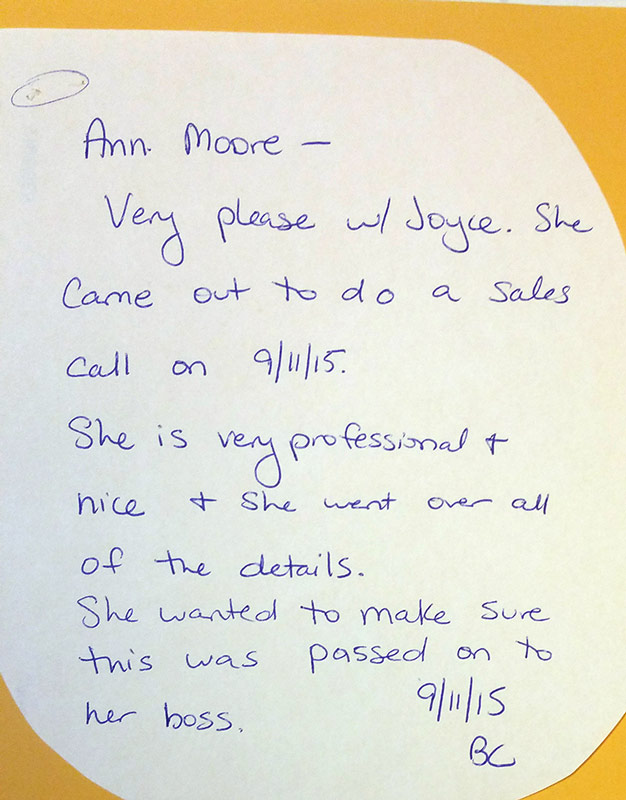 Ann. Moore —
Very please w/ Joyce. She
came out to do a sales
call on 9/11/15.
She is very professional +
nice + she went over all
of the details.
She wanted to make sure
this was passed on to
her boss.
9/11/15
BC